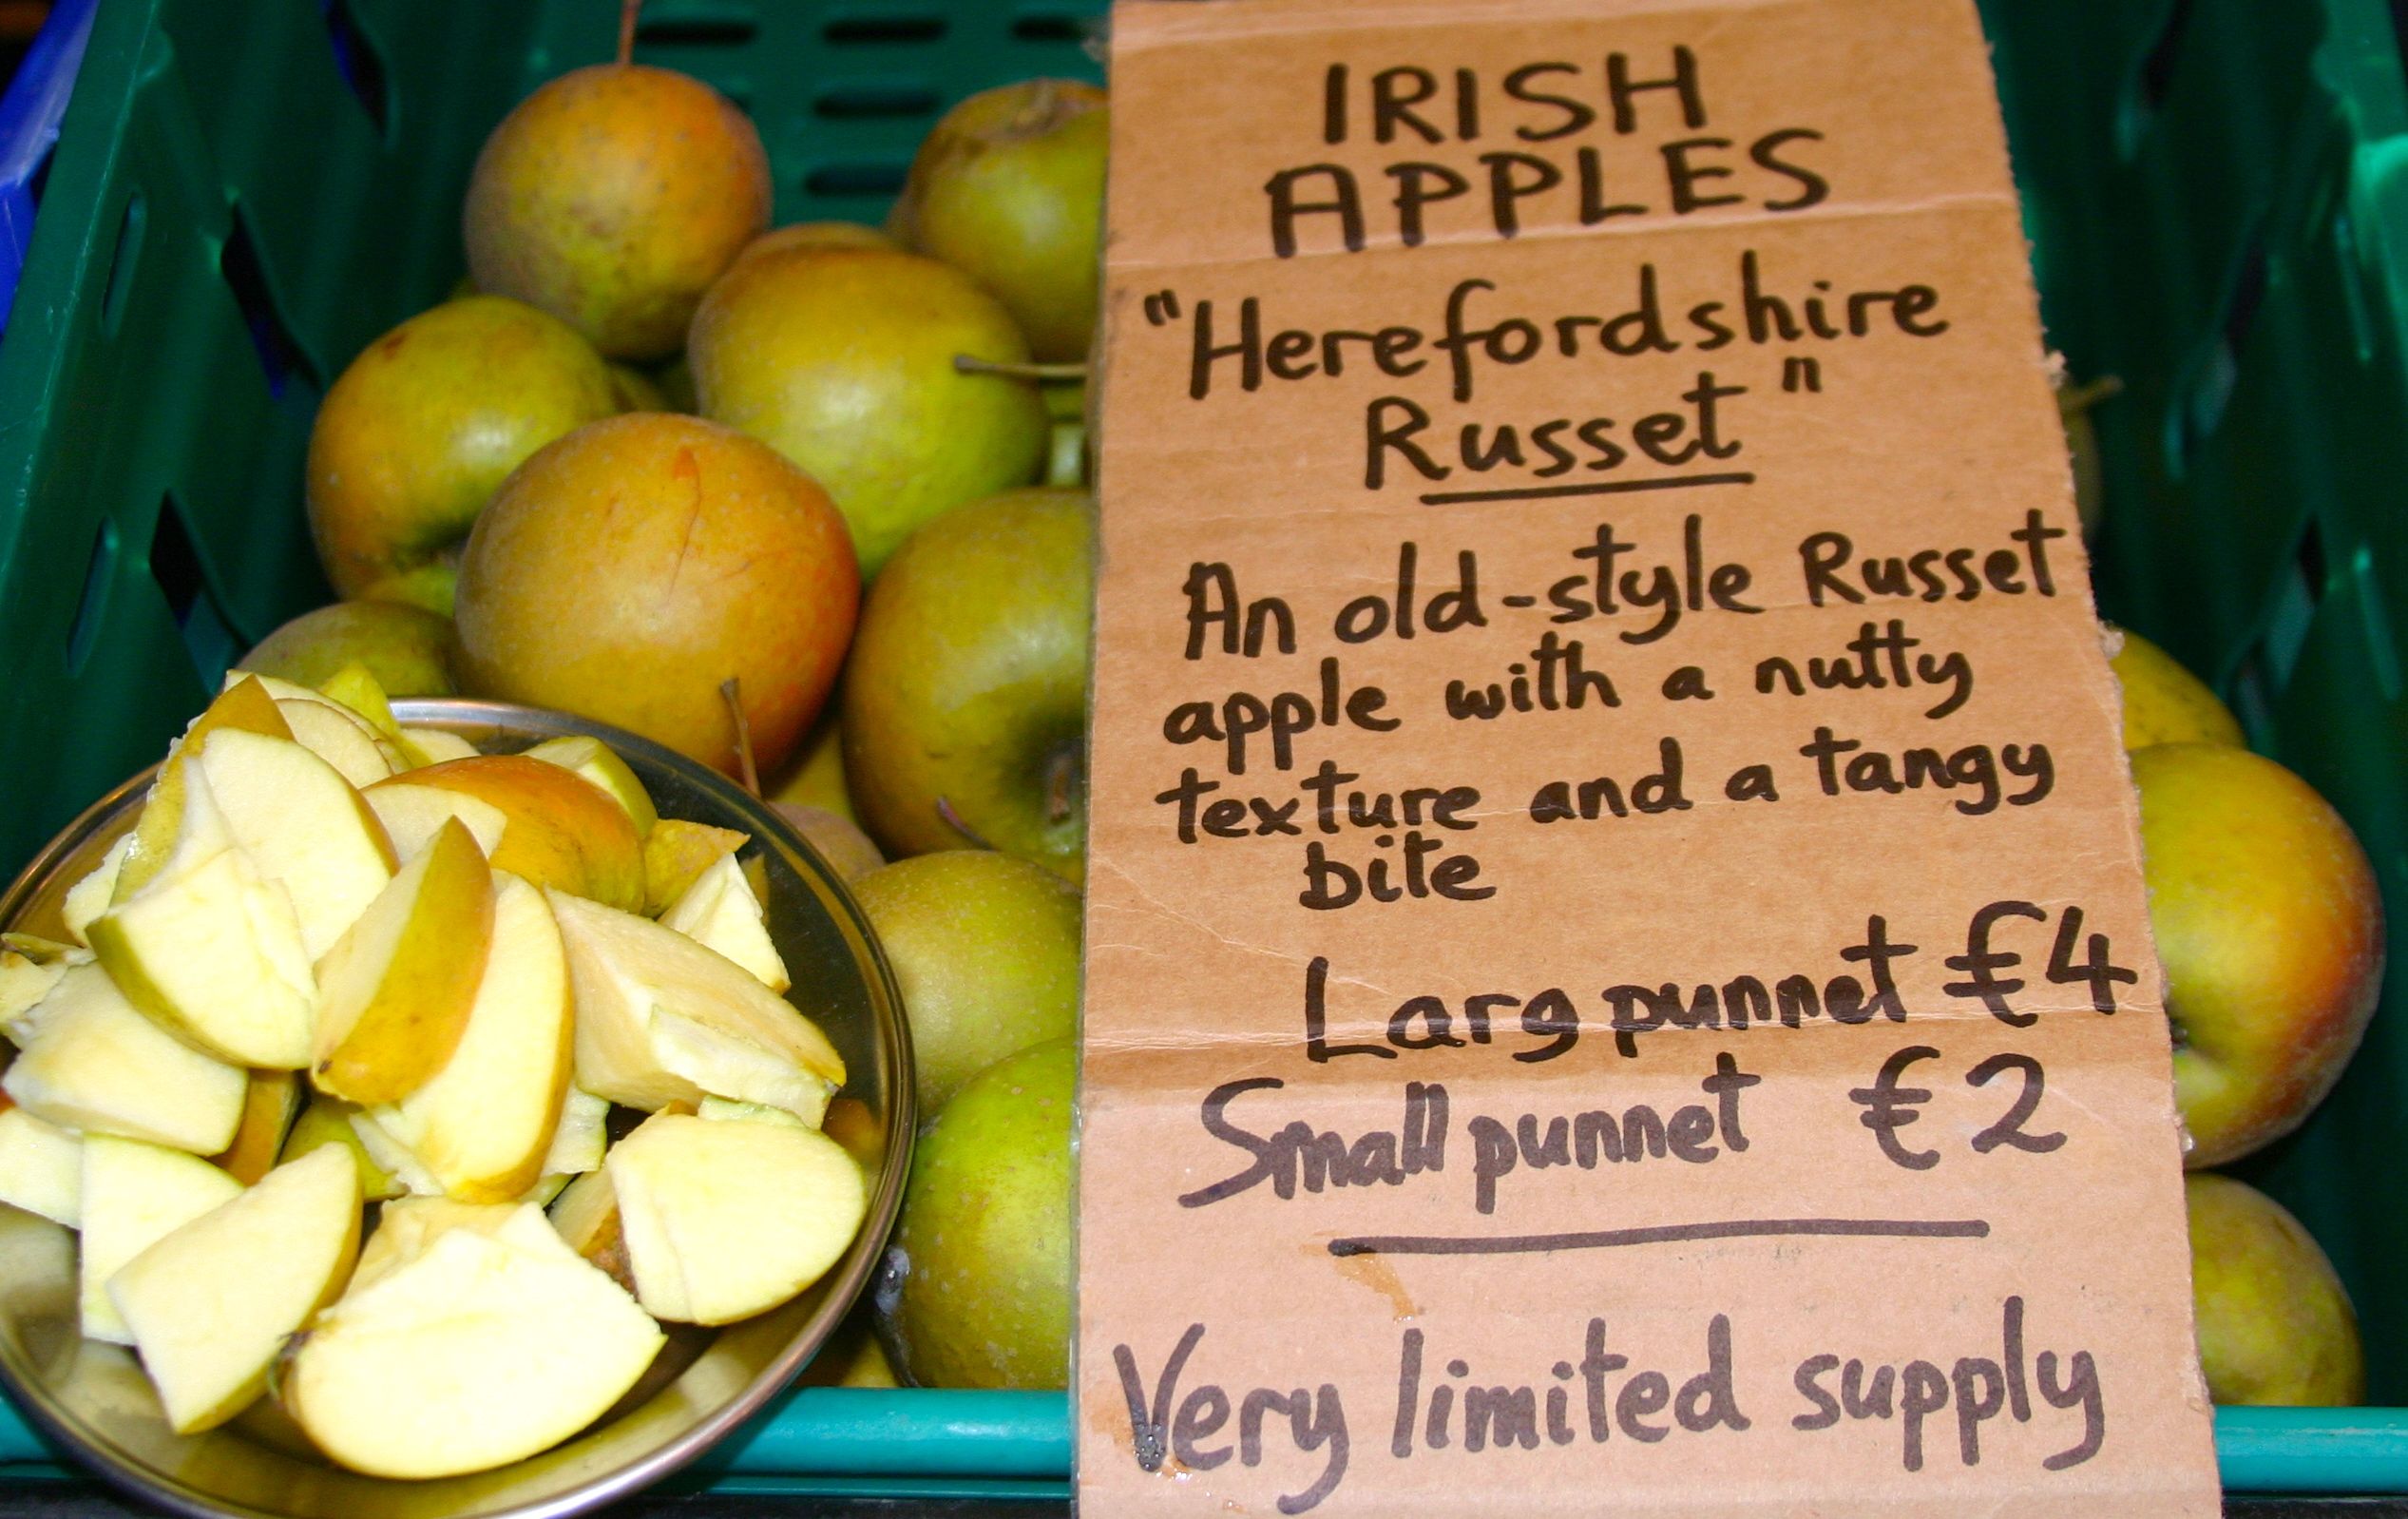 IRISH
APPLES
"Herefordshire
Russet"
An old-style Russet
apple with a nutty
texture and a tangy
bite
Larg punnet €4
Small punnet €2
Very limited supply